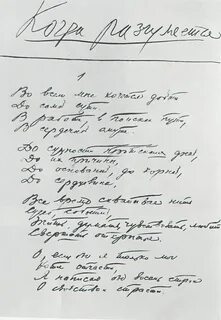 Когда разгуляется
1
Во всем мне хочется дойти
До самой сути.
В работе, в поисках пути,
В сердечной смуте.
До сущности протекших дней,
До их причины,
До оснований, до корней,
До сердцевины.
Все время схватывая нить
Судеб, событий,
Жить, думать, чувствовать, любить,
Свершать открытья.
О, если бы я только мог
Хотя отчасти
Я написал бы восемь строк
О свойствах страсти.